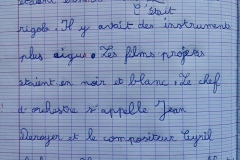 étaient
C'était
rigolo. Il y avait des instruments
plus aigue. Les films projetés
étaient en noir et blanc. Le chef
d'orchestre s'appelle Jean
Deroyer et le compositeur Cyril